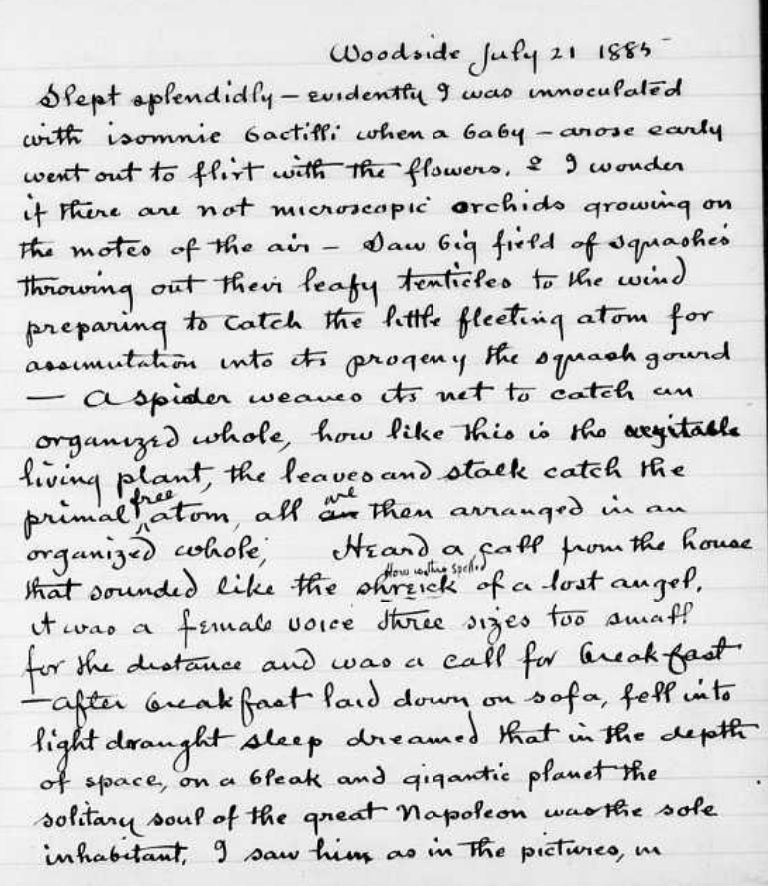 Woodside July 21 1885
Slept splendidly – evidently I was innoculated
with isomnie bactilli when a baby – arose early
went out to flirt with the flowers. & I wonder
if there are not microscopic orchids growing on
the motes of the air – Saw big field of squashes
throwing out their leafy tenticles to the wind
preparing to catch the little fleeting atom for
assimutation into its progeny the squash gourd
— A spider weaves its net to catch an
organized whole, how like this is the vegitable
living plant, the leaves and stalk catch the
primal free atom, all an are then arranged in an
organized whole; Heard a call from the house
How is this spelled
that sounded like the shreick of a lost angel,
it was a female voice three sizes too small
for the distance and was a call for breakfast
— After breakfast laid down on sofa, fell into
light draught sleep dreamed that in the depth
of space, on a bleak and gigantic planet the
solitary soul of the great Napoleon was the sole
inhabitant. I saw him as in the pictures, in